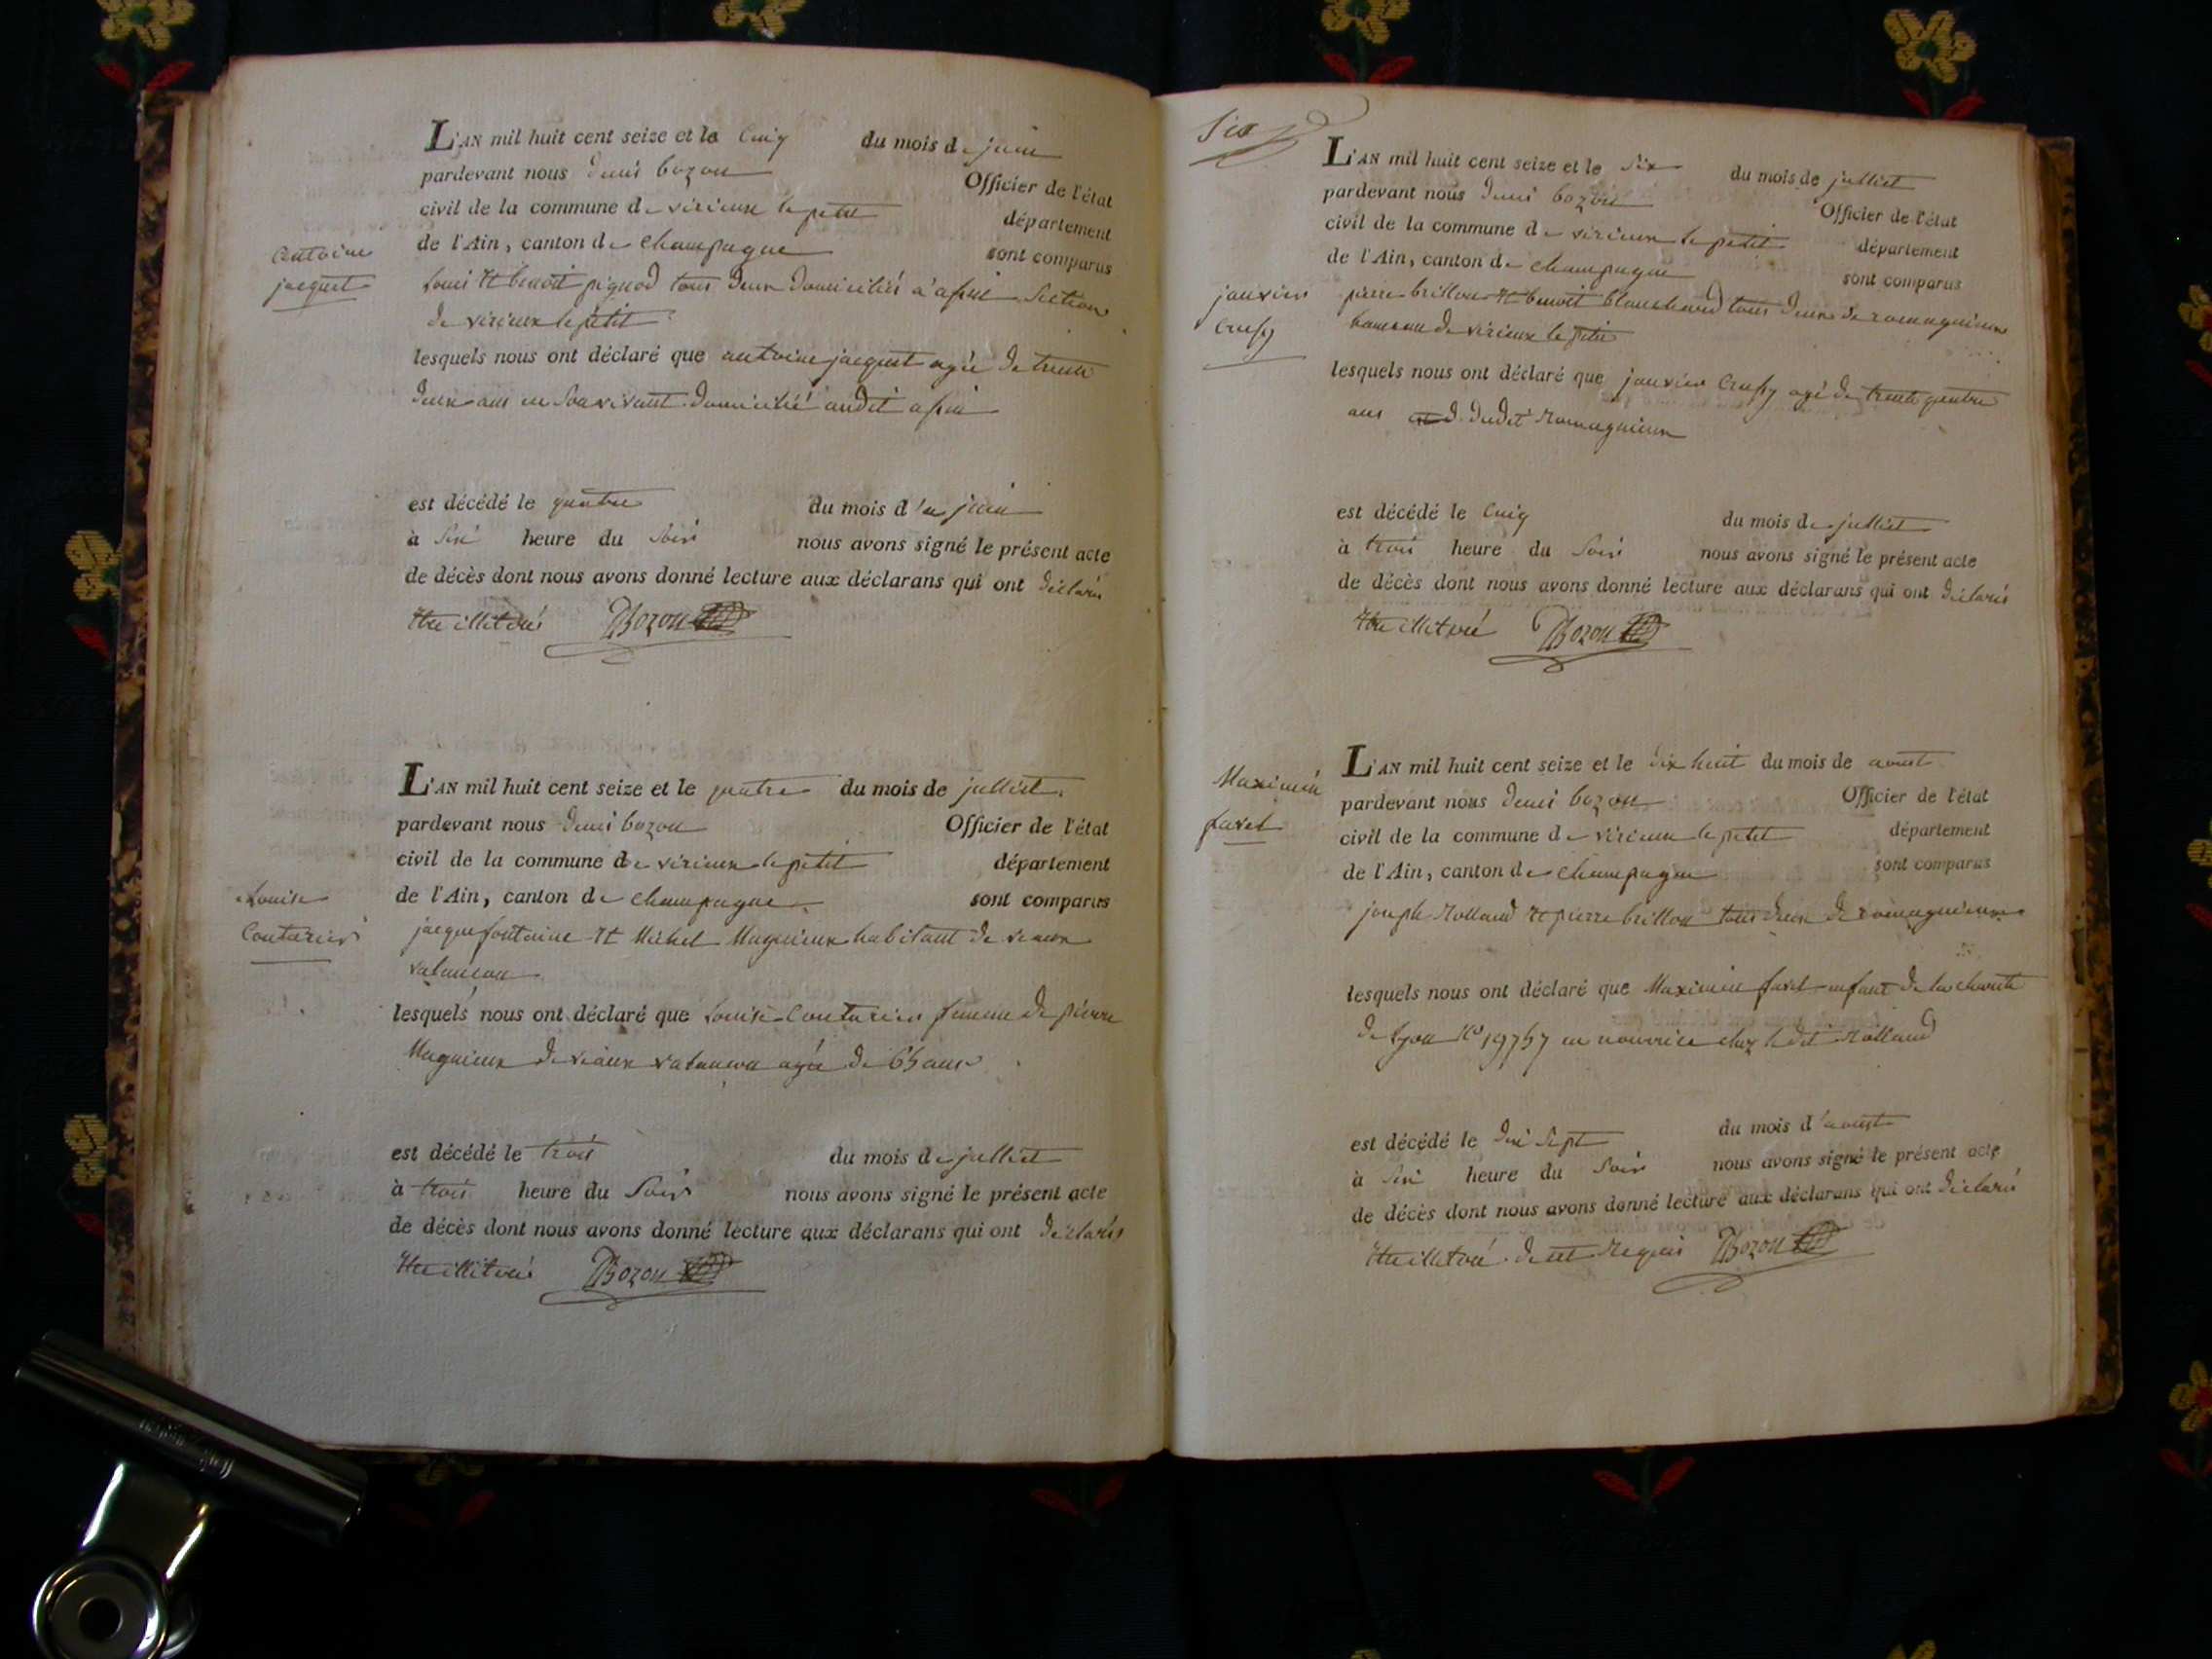 L'AN mil huit cent seize et le Cinq du mois de juin
pardevant nous denis bozon Officier de l'état
civil de la commune de virieux le petit département
de l'Ain, canton de Champagne sont comparus
antoine
jacquet
Louis et benoit pignod tous deux domiciliés a assin Section
de virieux le petit
lesquels nous ont déclaré que antoine jacquet agée de trente
deux ans en Son vivant domicilié audit assin
est décédé le quatre du mois de juin
à Six heure du Soir nous avons signé le présent acte
de décès dont nous avons donné lecture aux déclarans qui ont déclarés
être illitérés DBozon
L'AN mil huit cent seize et le quatre du mois de julliet
pardevant nous denis bozon Officier de l'état
civil de la commune de virieux le petit département
de l'Ain, canton de Champagne sont comparus
Louise
Couturier
jacque fontaine et Michel Magnieux habitant de
lesquels nous ont déclaré que Louise Couturier femme de pierre
Magnieux de agée de 65 ans
est décédé le trois du mois de julliet
à trois heure du Soir nous avons signé le présent acte
de décès dont nous avons donné lecture aux déclarans qui ont déclarés
être illitérés DBozon
Six
L'AN mil huit cent seize et le Six du mois de julliet
pardevant nous denis bozon Officier de l'état
civil de la commune de virieux le petit département
de l'Ain, canton de Champagne sont comparus
janvier
pierre brillon et benoit blanchard tous deux de romagnieux
hameau de virieux le petit
lesquels nous ont déclaré que janvier agé de trente quatre
ans d. dudit Romagnieux
est décédé le Cinq du mois de julliet
à trois heure du Soir nous avons signé le présent acte
de décès dont nous avons donné lecture aux déclarans qui ont déclarés
être illitéré DBozon
L'AN mil huit cent seize et le dix huit du mois de aoust
Maximin
favel
pardevant nous denis bozon Officier de l'état
civil de la commune de virieux le petit département
de l'Ain, canton de Champagne sont comparus
joseph Rolland et pierre brillon tous deux de romagnieux
lesquels nous ont déclaré que Maximin favel enfant de la charité
de Lyon No 19757 en nourrice chez ledit Rolland
est décédé le dix Sept du mois d'aoust
à Six heure du Soir nous avons signé le présent acte
de décès dont nous avons donné lecture aux déclarans qui ont déclarés
être illitéré de ce Requis DBozon